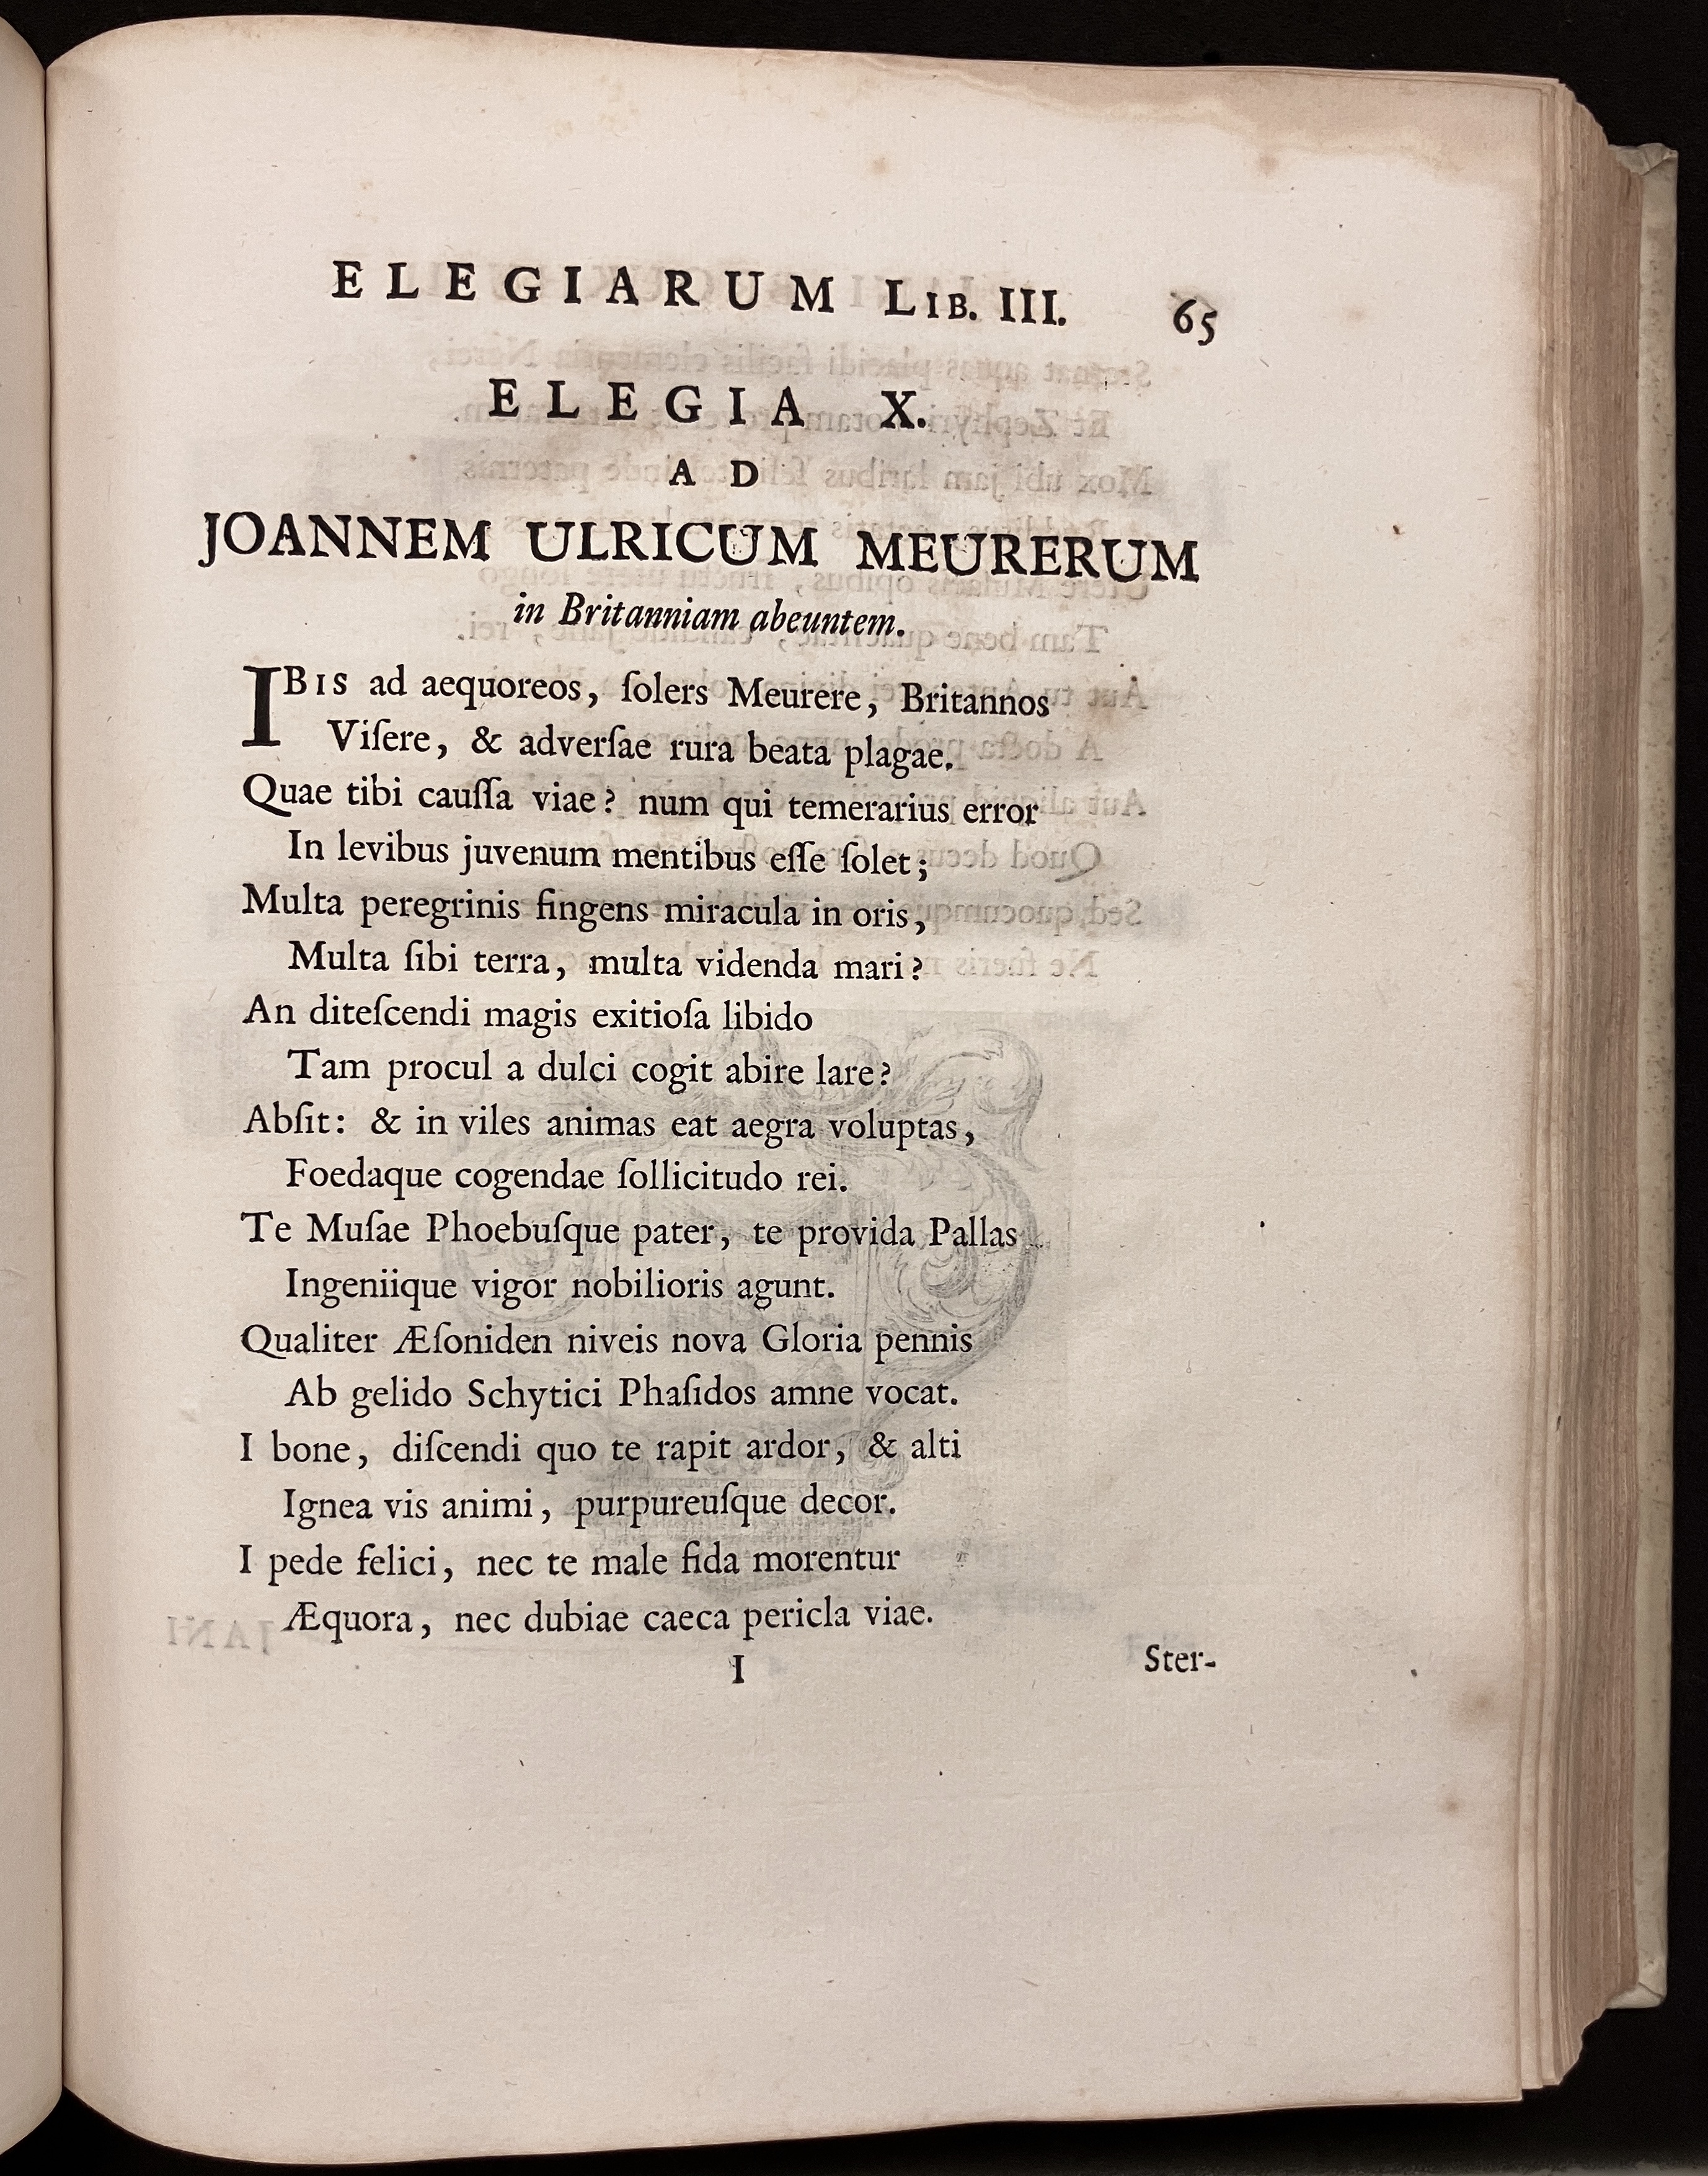 ELEGIARUM LIB. III. 65
ELEGIA X.
AD
JOANNEM ULRICUM MEURERUM
in Britanniam abeuntem.
IBIS ad aequoreos, ſolers Meurere, Britannos
Viſere, & adverſae rura beata plagae.
Quae tibi cauſſa viae? num qui temerarius error
In levibus juvenum mentibus eſſe ſolet;
Multa peregrinis fingens miracula in oris,
Multa ſibi terra, multa videnda mari?
An diteſcendi magis exitioſa libido
Tam procul a dulci cogit abire lare?
Abſit: & in viles animas eat aegra voluptas,
Foedaque cogendae ſollicitudo rei.
Te Muſae Phoebuſque pater, te provida Pallas
Ingeniique vigor nobilioris agunt.
Qualiter Æſoniden niveis nova Gloria pennis
Ab gelido Schytici Phaſidos amne vocat.
I bone, diſcendi quo te rapit ardor, & alti
Ignea vis animi, purpureuſque decor.
I pede felici, nec te male fida morentur
Æquora, nec dubiae caeca pericla viae.
I Ster-